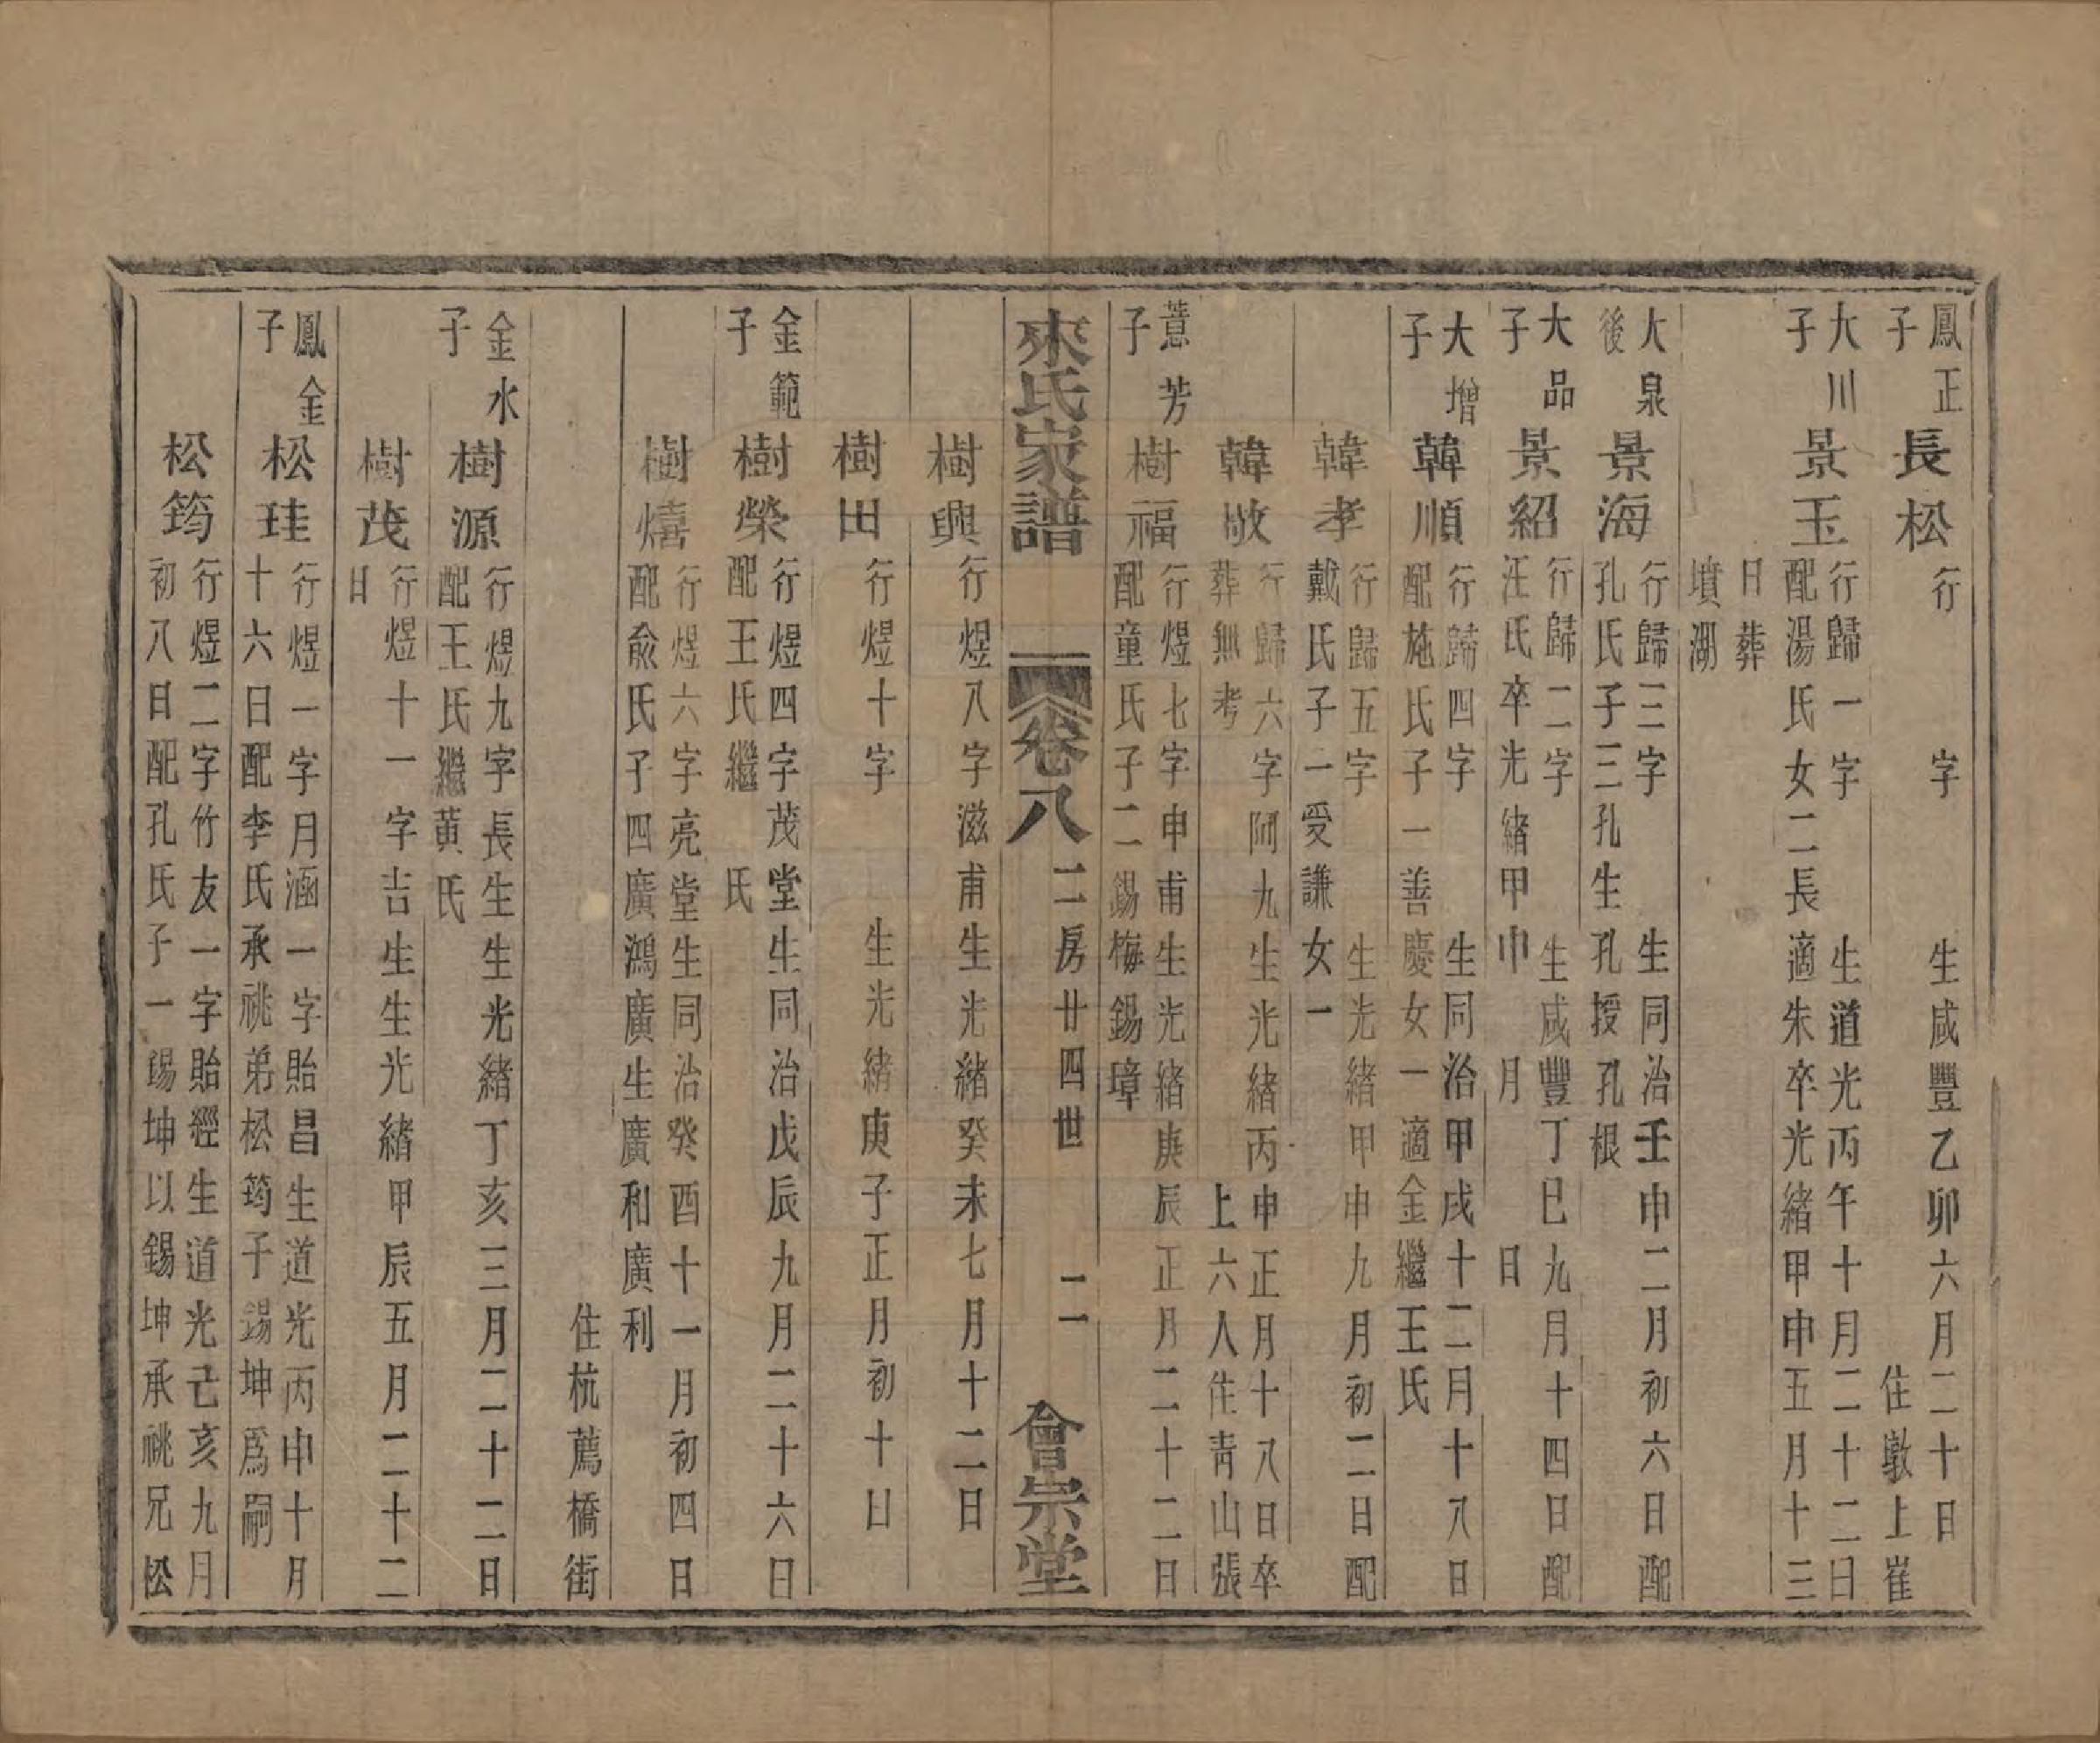 鳳正
子
長松
行　字　生咸豐乙卯六月二十日
住墩上崔
大川
子
景玉
行歸一字　生道光丙午十月二十二日
配湯氏女二長適朱卒光緒甲申五月十三
日葬
墳湖
大泉
後
景海
行歸三字　生同治壬申二月初六日配
孔氏子三孔生孔授孔根
大品
子
景紹
行歸二字　生咸豐丁巳九月十四日配
汪氏卒光緒甲申　月　日
大增
子
韓順
行歸四字　生同治甲戌十二月十八日
配施氏子一善慶女一適金繼王氏
韓孝
行歸五字　生光緒甲申九月初二日配
戴氏子一受謙女一
韓敬
行歸六字阿九生光緒丙申正月十八日卒
葬無考　上六人住青山張
薏芳
子
樹福
行煜七字申甫生光緒庚辰正月二十二日
配童氏子二錫梅錫璋
來氏家譜　卷八　二房廿四世　二　會宗堂
樹興
行煜八字滋甫生光緒癸未七月十二日
樹田
行煜十字　生光緒庚子正月初十日
金範
子
樹榮
行煜四字茂堂生同治戊辰九月二十六日
配王氏繼　氏
樹熺
行煜六字亮堂生同治癸酉十一月初四日
配俞氏子四廣鴻廣生廣和廣利
住杭薦橋街
金水
子
樹源
行煜九字長生生光緒丁亥三月二十二日
配王氏繼黃氏
樹茂
行煜十一字吉生生光緒甲辰五月二十二
日
鳳金
子
松珪
行煜一字月涵一字貽昌生道光丙申十月
十六日配李氏承祧弟松筠子錫坤爲嗣
松筠
行煜二字竹友一字貽經生道光己亥九月
初八日配孔氏子一錫坤以錫坤承祧兄松